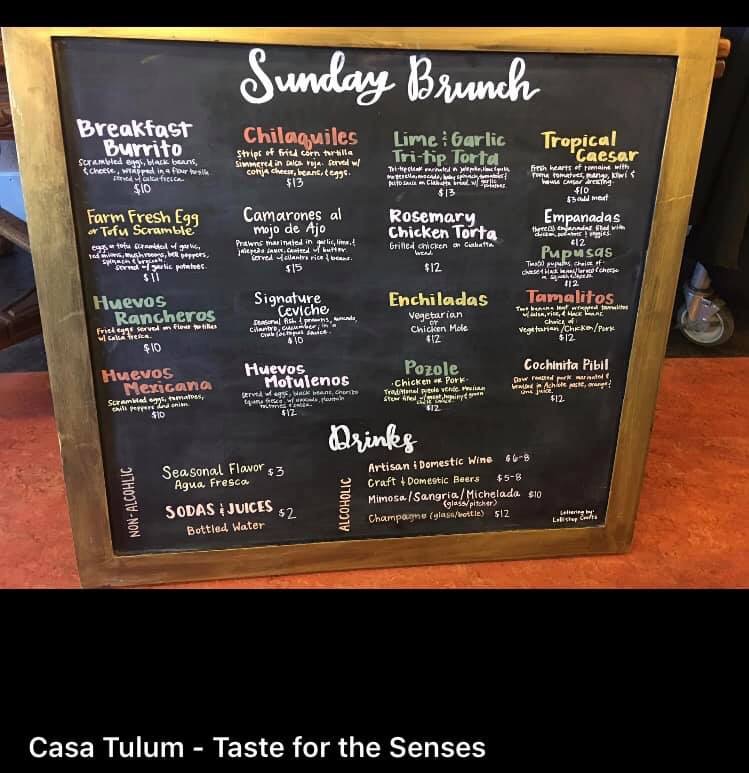 Sunday Brunch
Breakfast
Burrito
Scrambled eggs, black beans,
& cheese, wrapped in a flour tortilla
served w/ salsa fresca.
$10
Chilaquiles
Strips of fried corn tortilla
Simmered in salsa roja. Served w/
cotija cheese, beans, & eggs.
$13
Lime & Garlic
Tri-tip Torta
$13
Tropical
Caesar
Fresh hearts of romaine with
roma tomatoes, mango, kiwi &
house caesar dressing.
$10
$3 add meat
Farm Fresh Egg
or Tofu Scramble
eggs or tofu scrambled w/ garlic,
red onions, mushrooms, bell peppers,
spinach & broccoli.
served w/ garlic potatoes.
$11
Camarones al
mojo de Ajo
Prawns marinated in garlic, lime, &
jalapeño sauce, sautéed w/ butter.
served w/ cilantro rice & beans.
$15
Rosemary
Chicken Torta
Grilled chicken on Ciabatta
bread
$12
Empanadas
three(3) empanadas filled with
chicken, potatoes & veggies.
$12
Pupusas
Two(2) pupusas, choice of
$12
Huevos
Rancheros
Fried eggs served on flour tortillas
w/ salsa fresca.
$10
Signature
Ceviche
Seasonal fish & prawns, avocado,
cilantro, cucumber, in a
$10
Enchiladas
Vegetarian
or
Chicken Mole
$12
Tamalitos
w/ salsa, rice, & black beans
choice of
Vegetarian/Chicken/Pork
$12
Huevos
Mexicana
Scrambled eggs, tomatoes,
chili peppers and onion.
$10
Huevos
Motulenos
served w/ eggs, black beans, chorizo
$12
Pozole
·Chicken or Pork·
$12
Cochinita Pibil
Slow roasted pork marinated &
braised in Achiote paste, orange &
lime juice.
$12
Drinks
NON-ALCOHLIC
Seasonal Flavor $3
Agua Fresca
SODAS & JUICES $2
Bottled Water
ALCOHOLIC
Artisan & Domestic Wine $6-8
Craft & Domestic Beers $5-8
Mimosa/Sangria/Michelada $10
(glass/pitcher)
Champagne (glass/bottle) $12
Lettering by:
Casa Tulum - Taste for the Senses